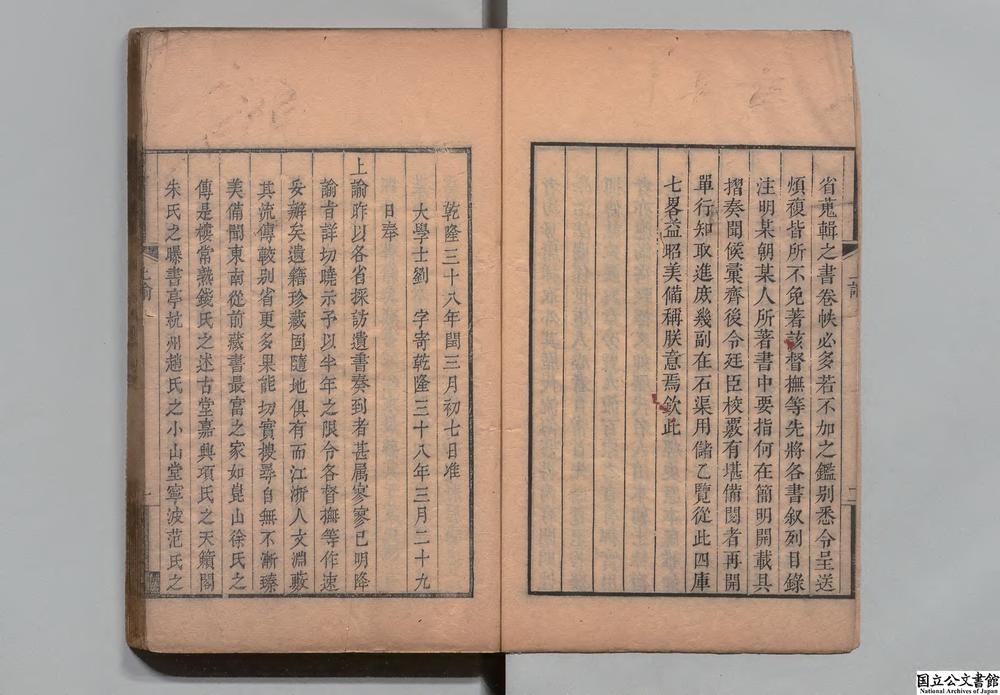 省蒐輯之書卷帙必多若不加之鑑别悉令呈送
煩複皆所不免著該督撫等先將各書叙列目錄
注明某朝某人所著書中要指何在簡明開載具
摺奏聞候彙齊後令廷臣校覈有堪備閱者再開
單行知取進庶幾副在石渠用儲乙覽從此四庫
七畧益昭美備稱朕意焉欽此
乾隆三十八年閏三月初七日准
大學士劉 字寄乾隆三十八年三月二十九
日奉
上諭昨以各省採訪遺書奏到者甚屬寥寥已明降
諭旨詳切曉示予以半年之限令各督撫等作速
妥辦矣遺籍珍藏固隨地俱有而江浙人文淵藪
其流傳較别省更多果能切實搜尋自無不漸臻
美備聞東南從前藏書最富之家如崑山徐氏之
傳是樓常熟錢氏之述古堂嘉興項氏之天籟閣
朱氏之曝書亭杭州趙氏之小山堂寧波范氏之
上諭
一
国立公文書館
National Archives of Japan